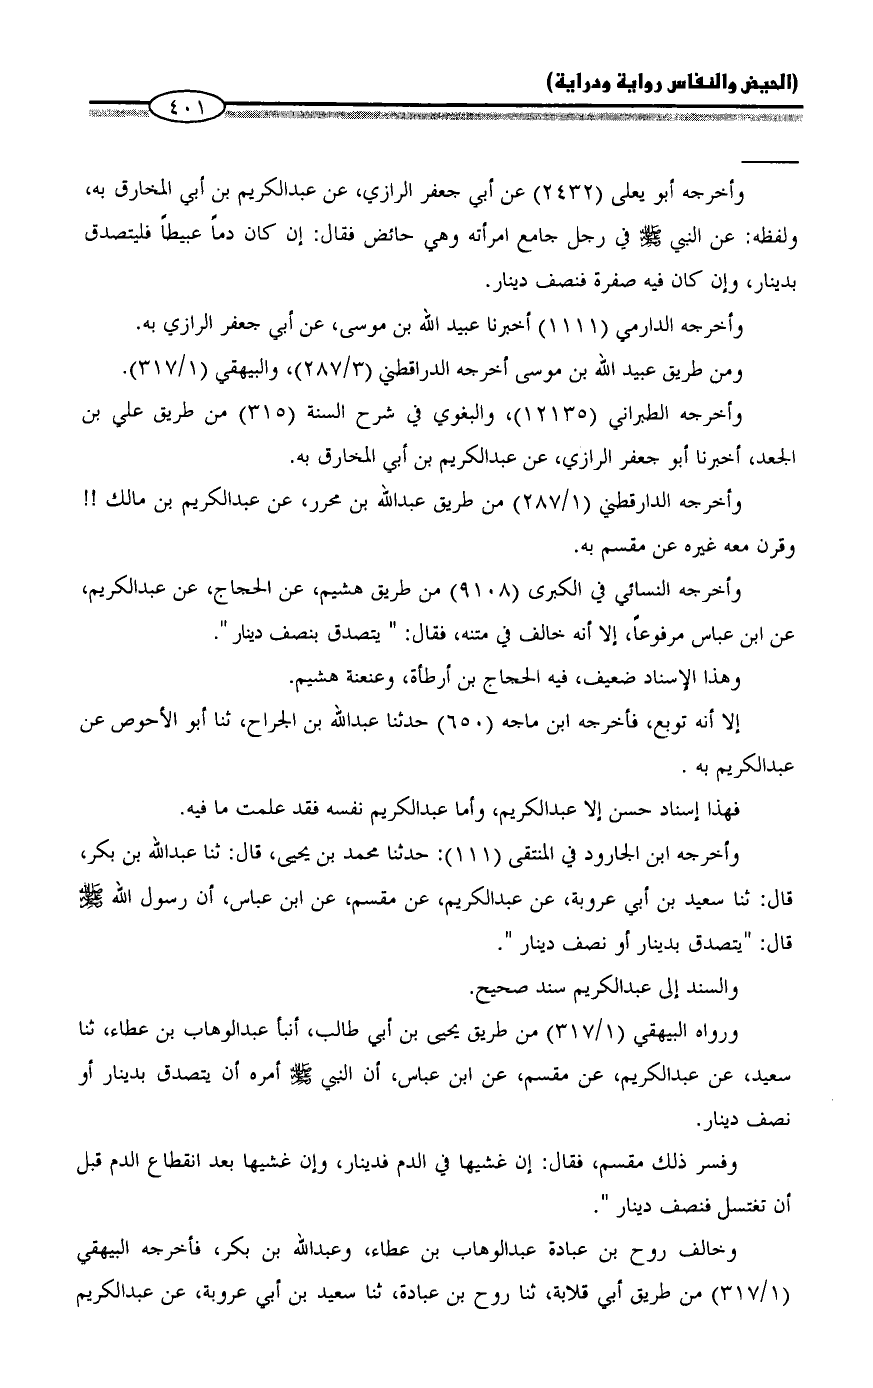 (الحيض والنفاس رواية ودراية)
٤٠١
وأخرجه أبو يعلى (٢٤٣٢) عن أبي جعفر الرازي، عن عبدالكريم بن أبي المخارق به،
ولفظه: عن النبي ﷺ في رجل جامع امرأته وهي حائض فقال: إن كان دماً عبيطاً فليتصدق
بدينار، وإن كان فيه صفرة فنصف دينار.
وأخرجه الدارمي (١١١١) أخبرنا عبيد الله بن موسى، عن أبي جعفر الرازي به.
ومن طريق عبيد الله بن موسى أخرجه الدراقطني (٢٨٧/٣)، والبيهقي (٣١٧/١).
وأخرجه الطبراني (١٢١٣٥)، والبغوي في شرح السنة (٣١٥) من طريق علي بن
الجعد، أخبرنا أبو جعفر الرازي، عن عبدالكريم بن أبي المخارق به.
وأخرجه الدارقطني (٢٨٧/١) من طريق عبدالله بن محرر، عن عبدالكريم بن مالك !!
وقرن معه غيره عن مقسم به.
وأخرجه النسائي في الكبرى (٩١٠٨) من طريق هشيم، عن الحجاج، عن عبدالكريم،
عن ابن عباس مرفوعاً، إلا أنه خالف في متنه، فقال: " يتصدق بنصف دينار ".
وهذا الإسناد ضعيف، فيه الحجاج بن أرطأة، وعنعنة هشيم.
إلا أنه توبع، فأخرجه ابن ماجه (٦٥٠) حدثنا عبدالله بن الجراح، ثنا أبو الأحوص عن
عبدالكريم به .
فهذا إسناد حسن إلا عبدالكريم، وأما عبدالكريم نفسه فقد علمت ما فيه.
وأخرجه ابن الجارود في المنتقى (١١١): حدثنا محمد بن يحيى، قال: ثنا عبدالله بن بكر،
قال: ثنا سعيد بن أبي عروبة، عن عبدالكريم، عن مقسم، عن ابن عباس، أن رسول الله ﷺ
قال: "يتصدق بدينار أو نصف دينار ".
والسند إلى عبدالكريم سند صحيح.
ورواه البيهقي (٣١٧/١) من طريق يحيى بن أبي طالب، أنبأ عبدالوهاب بن عطاء، ثنا
سعيد، عن عبدالكريم، عن مقسم، عن ابن عباس، أن النبي ﷺ أمره أن يتصدق بدينار أو
نصف دينار.
وفسر ذلك مقسم، فقال: إن غشيها في الدم فدينار، وإن غشيها بعد انقطاع الدم قبل
أن تغتسل فنصف دينار ".
وخالف روح بن عبادة عبدالوهاب بن عطاء، وعبدالله بن بكر، فأخرجه البيهقي
(٣١٧/١) من طريق أبي قلابة، ثنا روح بن عبادة، ثنا سعيد بن أبي عروبة، عن عبدالكريم